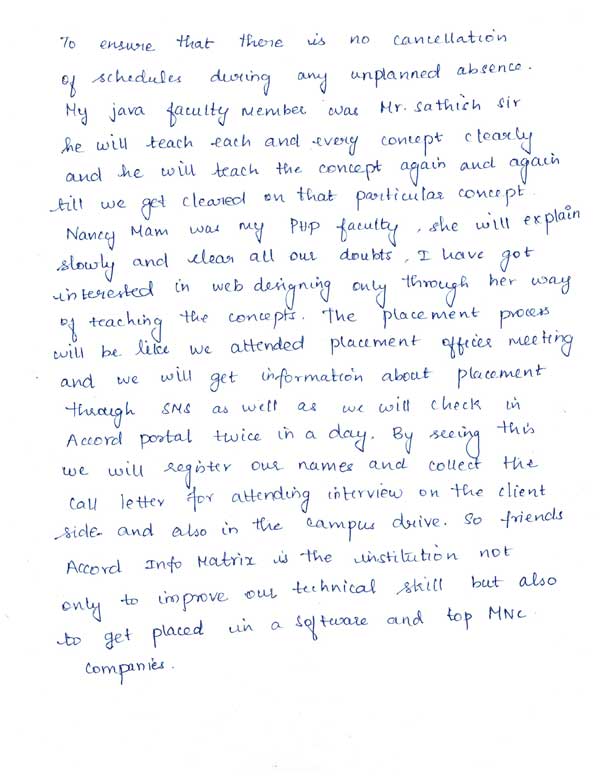 To ensure that there is no cancellation
of schedules during any unplanned absence.
My java faculty Member was Mr. Sathish sir
he will teach each and every concept clearly
and he will teach the concept again and again
till we get cleared on that particular concept.
Nancy Mam was my PHP faculty, she will explain
slowly and clear all our doubts, I have got
interested in web designing only through her way
of teaching the concepts. The placement process
will be like we attended placement officer meeting
and we will get information about placement
through SMS as well as we will check in
Accord portal twice in a day. By seeing this
we will register our names and collect the
Call letter for attending interview on the client
side and also in the campus drive. So friends
Accord Info Matrix is the institution not
only to improve our technical skill but also
to get placed in a software and top MNC
companies.